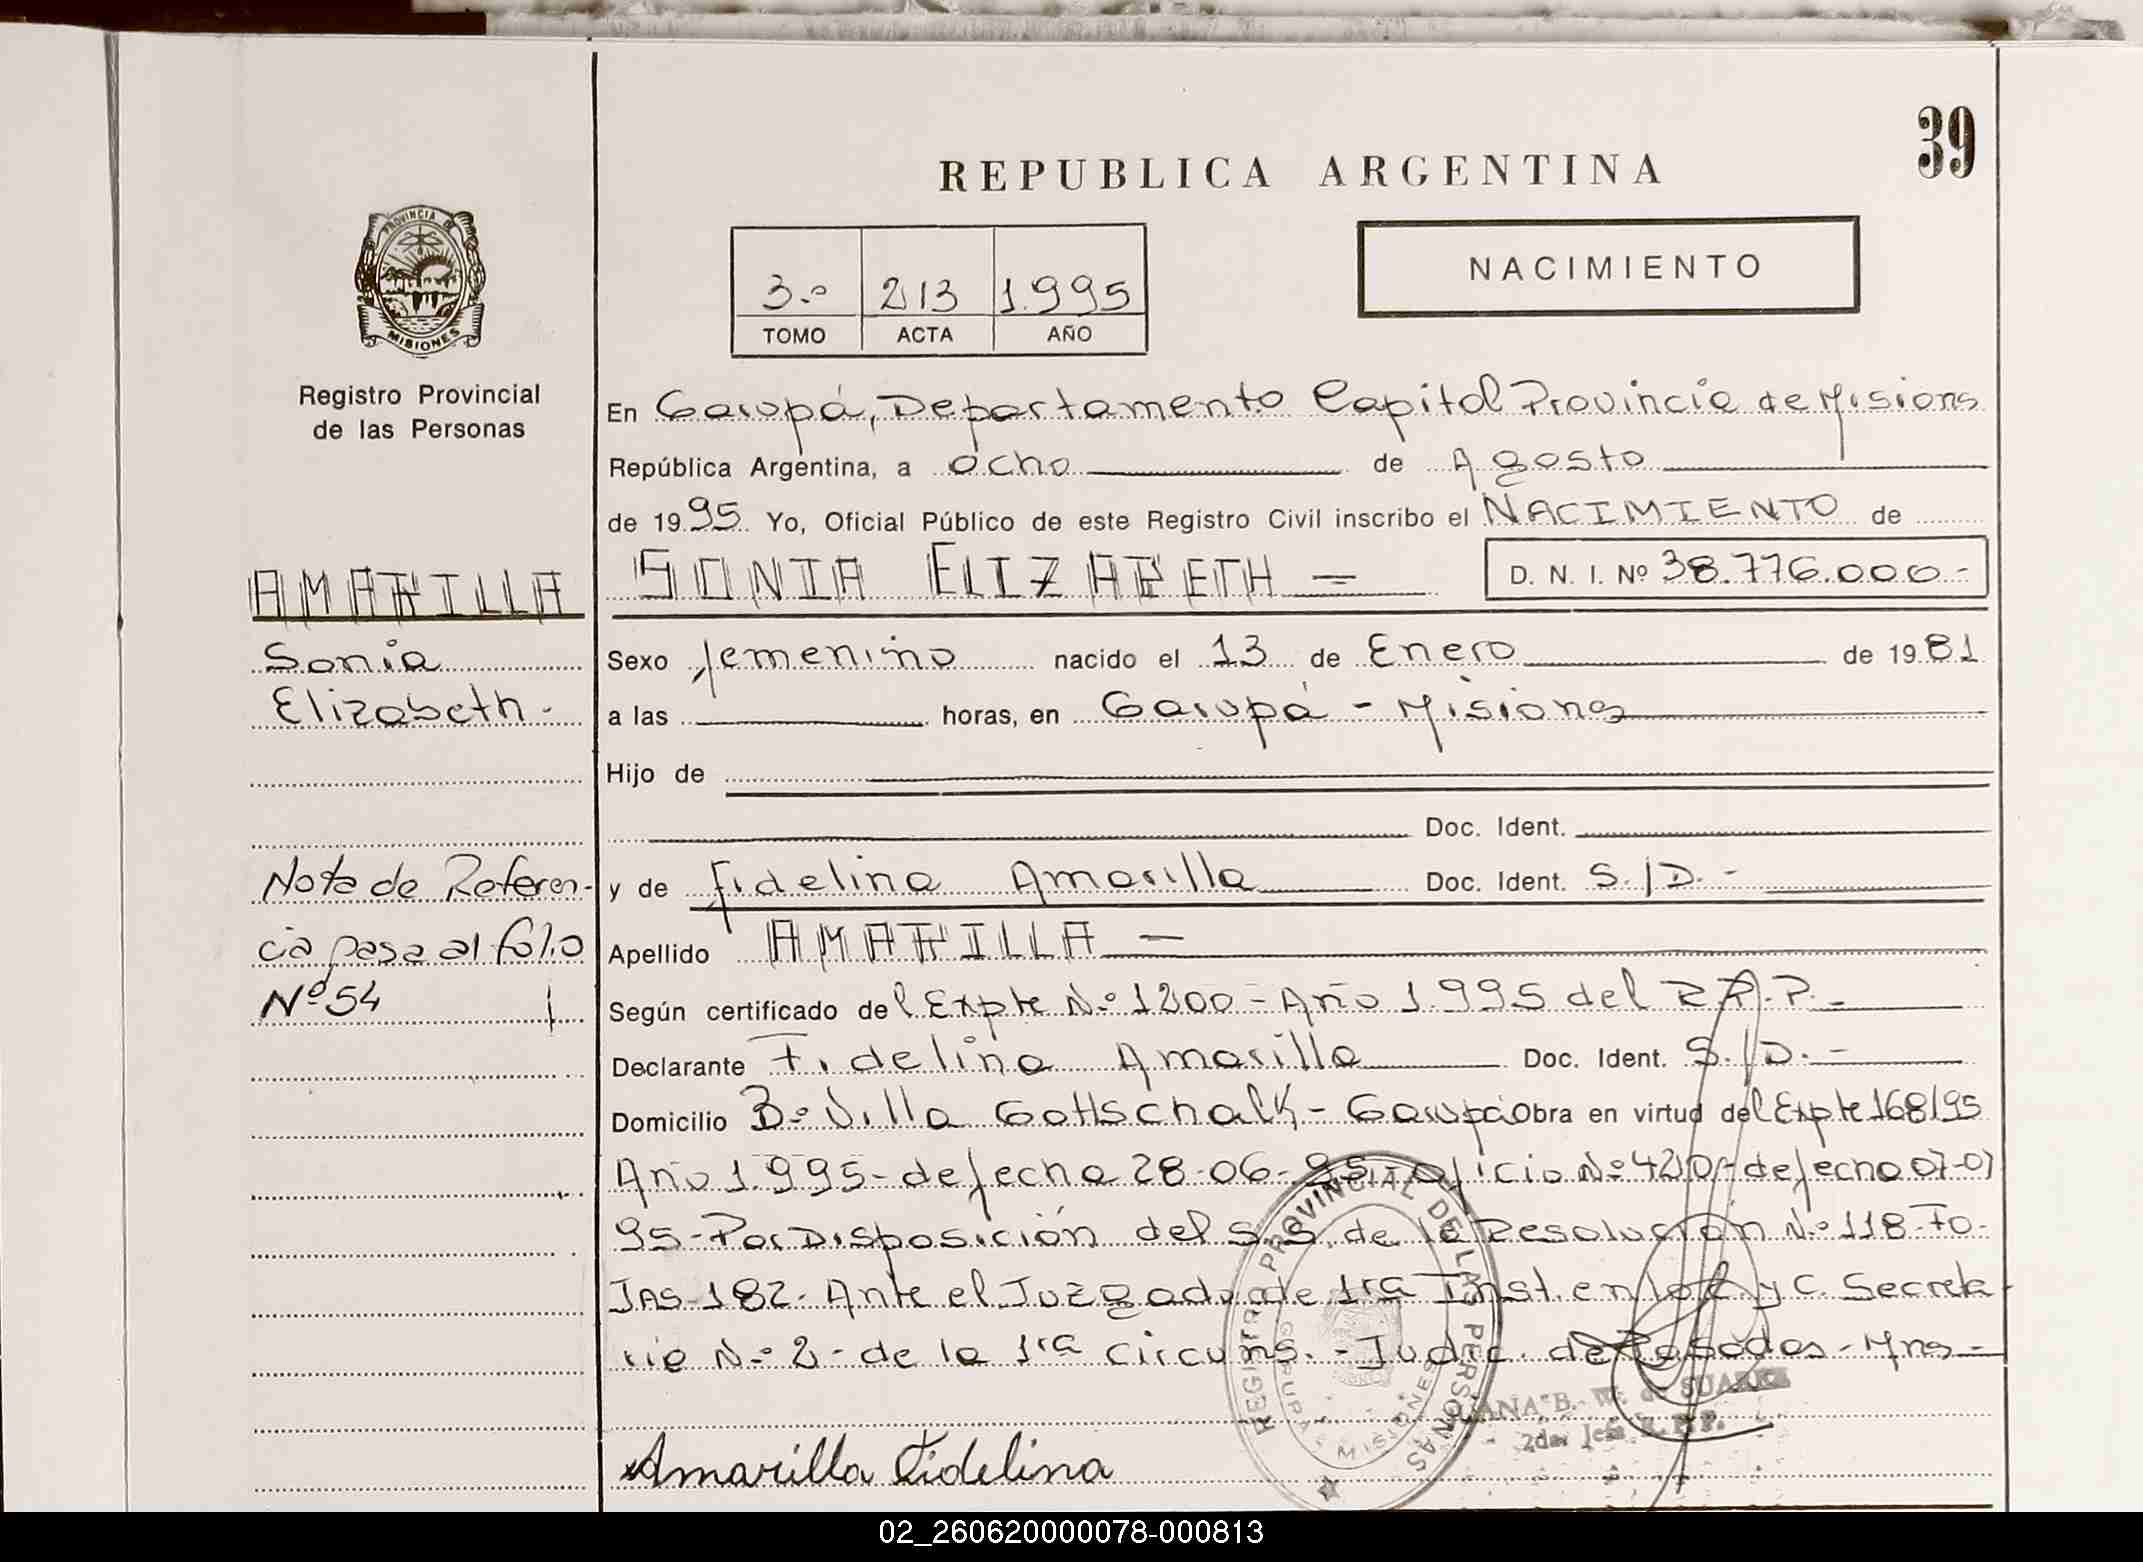 39
REPUBLICA ARGENTINA
PROVINCIA DE
MISIONES
Registro Provincial
de las Personas
3.º 213 1.995
TOMO ACTA AÑO
NACIMIENTO
En Garupá, Departamento Capital Provincia de Misiones
República Argentina, a ocho de Agosto
de 1995. Yo, Oficial Público de este Registro Civil inscribo el NACIMIENTO de
AMARILLA
SONIA ELIZABETH = D. N. I. Nº 38.776.000-
Sonia
Sexo femenino nacido el 13 de Enero de 1981
Elizabeth-
a las horas, en Garupá - Misiones
Hijo de
Doc. Ident.
Nota de Referen-
y de Fidelina Amarilla Doc. Ident. S./D.-
cia pasa al folio
Apellido AMARILLA -
Nº 54
Según certificado del Expte Nº 1200- Año 1.995 del R.P.P.-
Declarante Fidelina Amarilla Doc. Ident. S./D.-
Domicilio Bº Villa Gottschalk - Garupá Obra en virtud del Expte 168/95
Año 1.995- de fecha 28-06-95- oficio Nº 420/- de fecha 07-07
95- Por Disposición del S.S. de la Resolución Nº 118- Fo-
JAS 182- Ante el Juzgado de 1ra Inst. en lo C. y C. Secreta-
ria Nº 2- de la 1ra Circuns.- Judic. de Posadas- Mnes-
REGISTRO PROVINCIAL DE LAS PERSONAS
GARUPA - MISIONES
JUANA B. W. de SUAREZ
2da. Jefa R.P.P.
Amarilla Fidelina
02_260620000078-000813